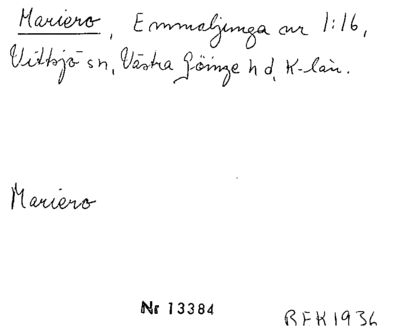 Mariero, Emmaljunga nr 1:16,
Vittsjö sn, Västra Göinge hd, K-län.
Mariero
Nr 13384
REK1936